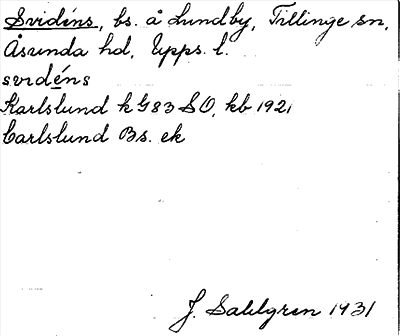 Svidéns, bs. å Lundby, Tillinge sn,
Åsunda hd, Upps. l.
svidéns
Karlslund k G83 SO, kb 1921
Carlslund Bs. ek
J. Sahlgren 1931